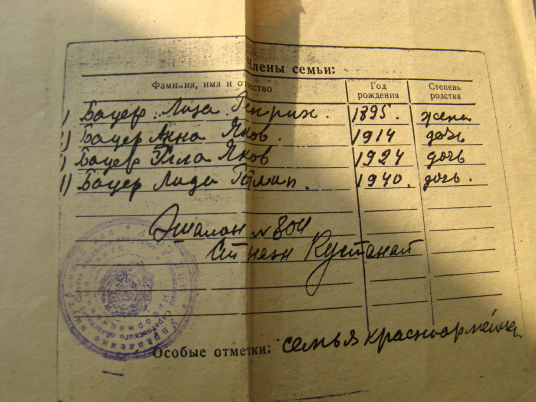 Члены семьи:
Фамилия, имя и отчество Год рождения Степень родства
1) Бауер Лиза Генрих. 1895. жена
1) Бауер Анна Яков. 1914 дочь
1) Бауер Яков 1924 дочь
1) Бауер Лида 1940. дочь.
Эшалон № 804
Кустанай
Управление
Особые отметки: семья красноармейца